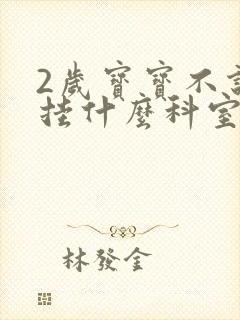 2歲寶寶不
挂什麼科室
林發金